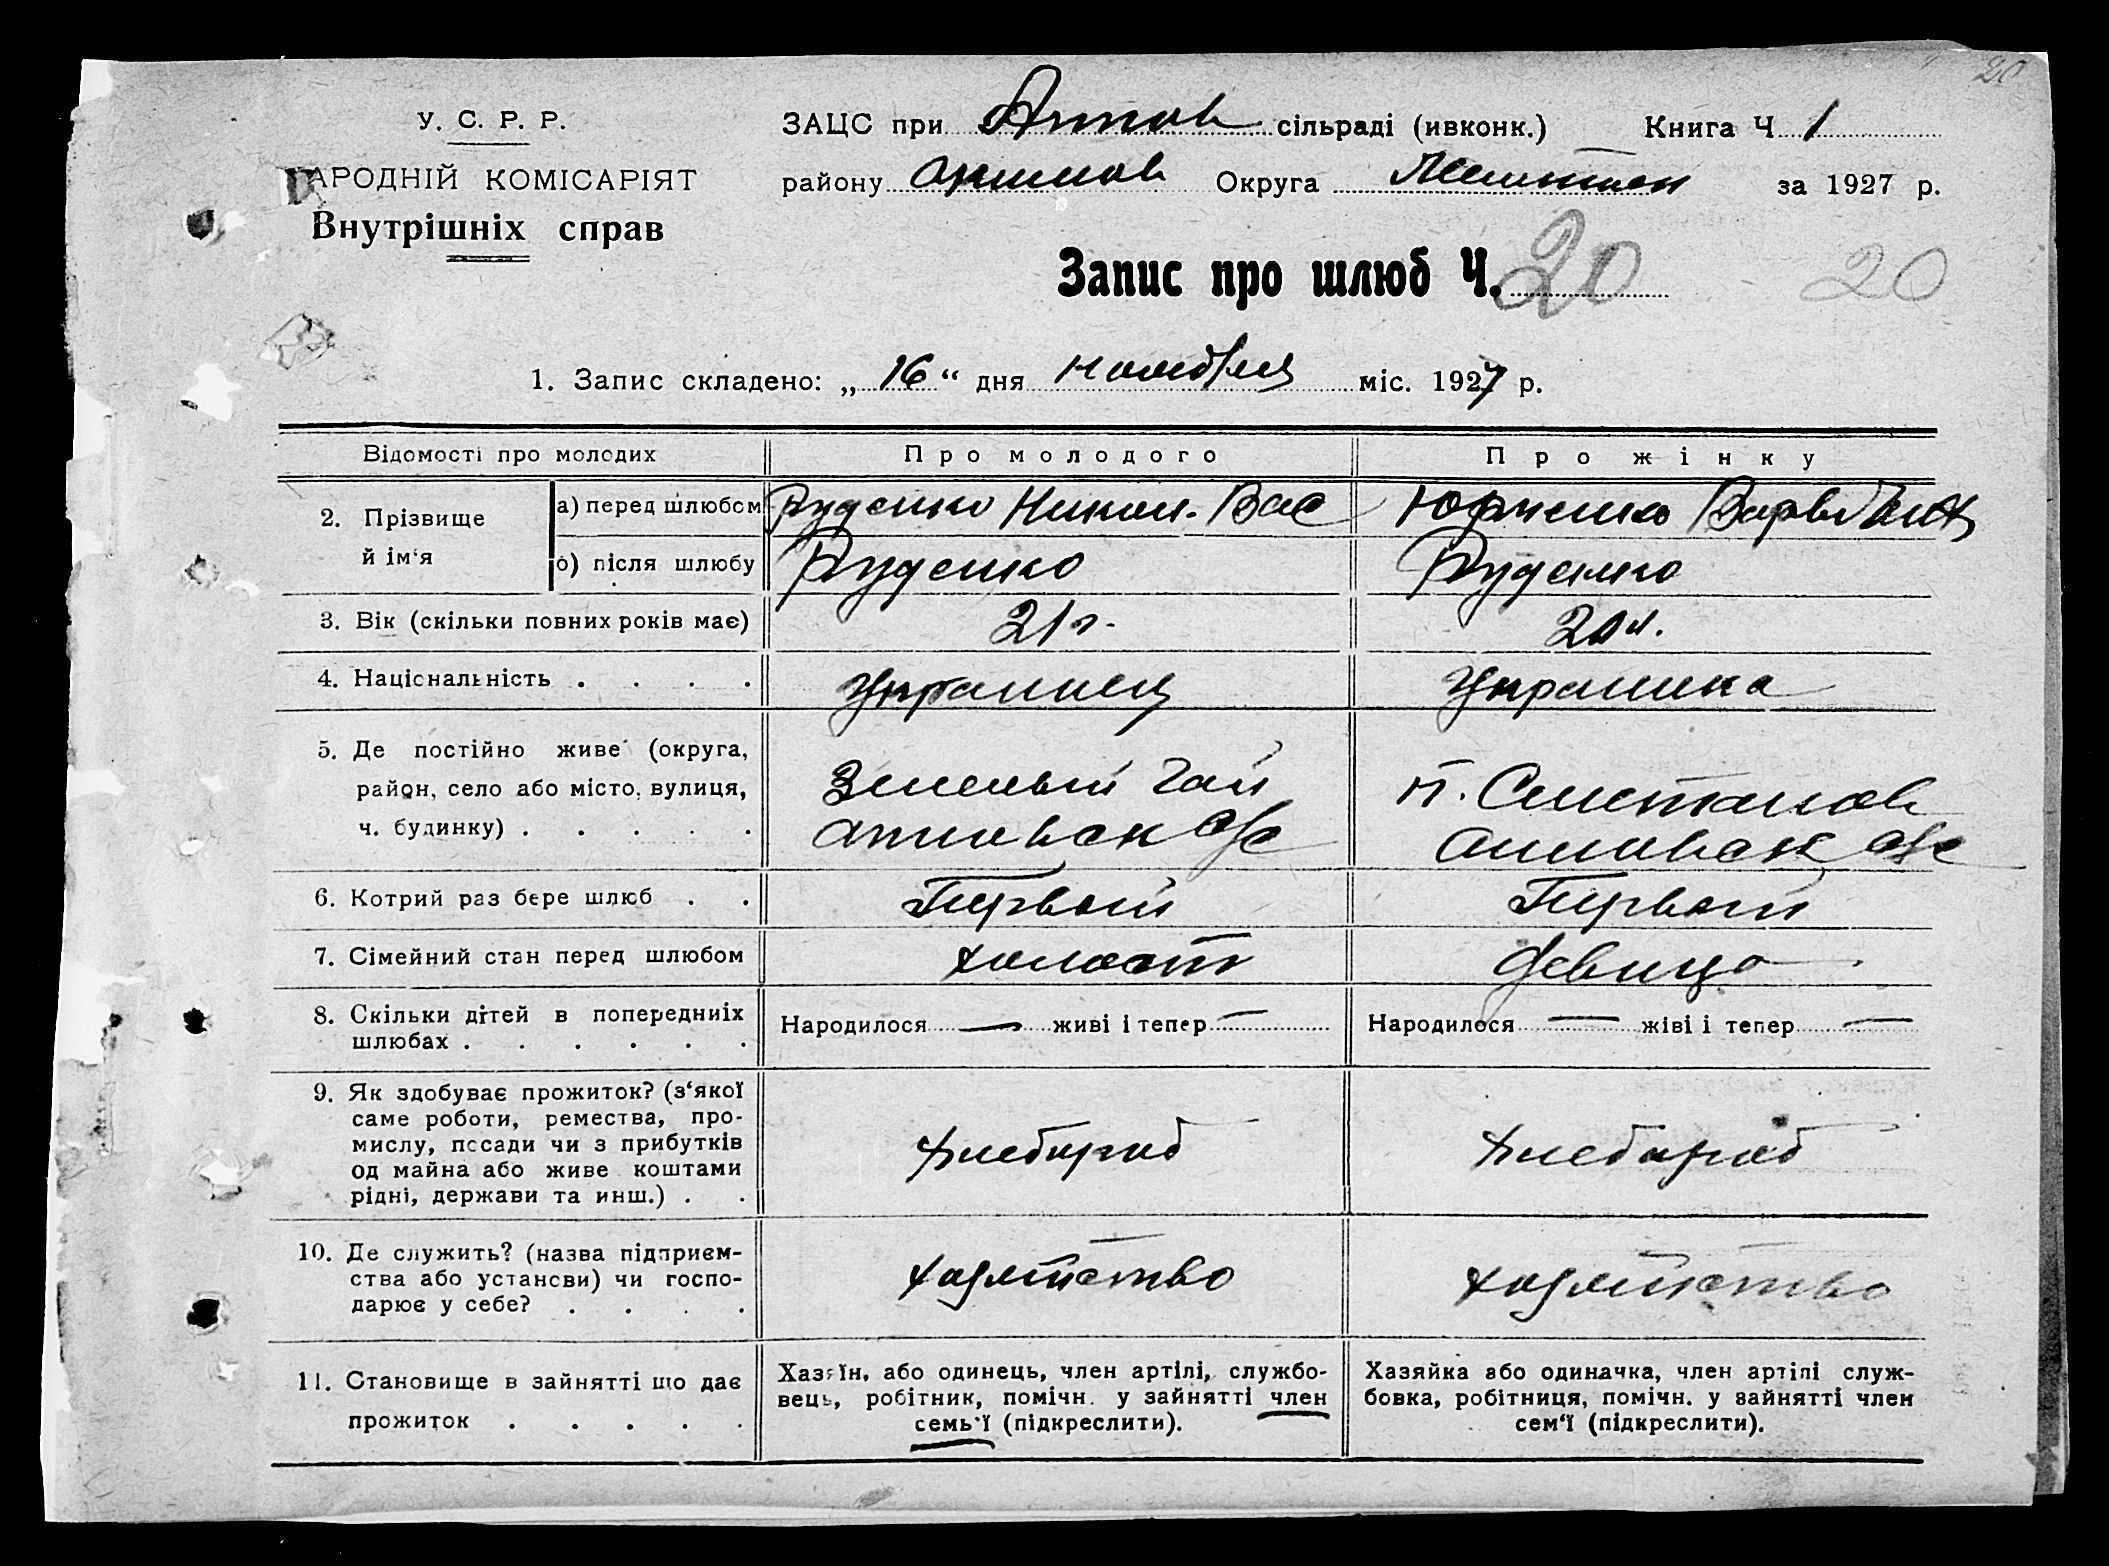 20
У. С. Р. Р.
НАРОДНІЙ КОМІСАРІЯТ
Внутрішніх справ
ЗАЦС при сільраді (ивконк.) Книга Ч 1
району Акимов Округа Мелитоп за 1927 р.
Запис про шлюб Ч. 20
20
1. Запис складено: „ 16 “ дня ноября міс. 1927 р.
Відомості про молодих Про молодого Про жінку
2. Прізвище й ім‘я
а) перед шлюбом Руденко Никол. Вас Юрченко Варва
б) після шлюбу Руденко Руденко
3. Вік (скільки повних років має) 21 г. 20 л.
4. Національність . . . . Украинец Украинка
5. Де постійно живе (округа,
район, село або місто, вулиця,
ч. будинку) . . . . .
Зеленый Гай
с/с
п.
с/с
6. Котрий раз бере шлюб . . Первый Первый
7. Сімейний стан перед шлюбом холост девица
8. Скільки дітей в попередниіх
шлюбах . . . . . .
Народилося — живі і тепер —
Народилося — жіві і тепер —
9. Як здобуває прожиток? (з‘якої
саме роботи, ремества, про-
мислу, посади чи з прибутків
од майна або живе коштами
рідні, держави та инш.) . .
хлебороб хлебороб
10. Де служить? (назва підприєм-
ства або установи) чи госпо-
дарює у себе? . . . .
хозяйство хозяйство
11. Становище в зайнятті що дає
прожиток . . . . .
Хазяїн, або одинець, член артілі, службо-
вець, робітник, помічн. у зайнятті член
семь‘ї (підкреслити).
Хазяйка або одиначка, член артілі служ-
бовка, робітниця, помічн. у зайнятті член
сем‘ї (підкреслити).